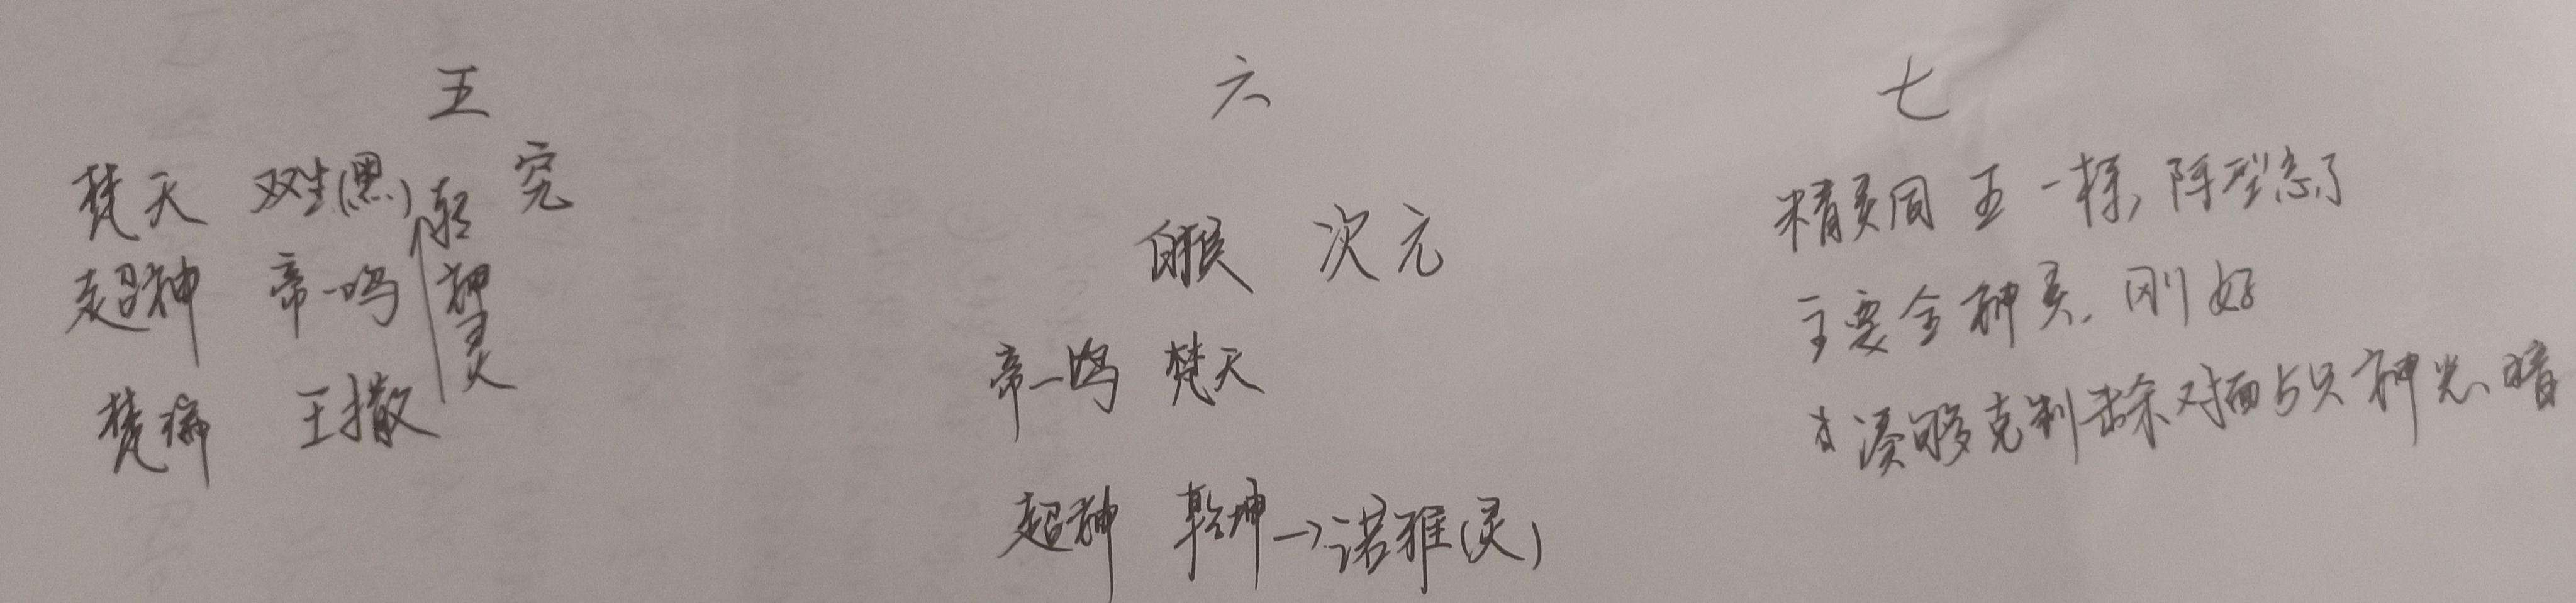 五
梵天 双生(黑) 究
超神 帝一鸣 神灵
梵 王撒
六
白猴 次元
帝一鸣 梵天
超神 乾坤→诺雅(灵)
七
精灵同五一样,阵型忘了
主要全神灵.刚好
凑够克制 对面5只神光、暗